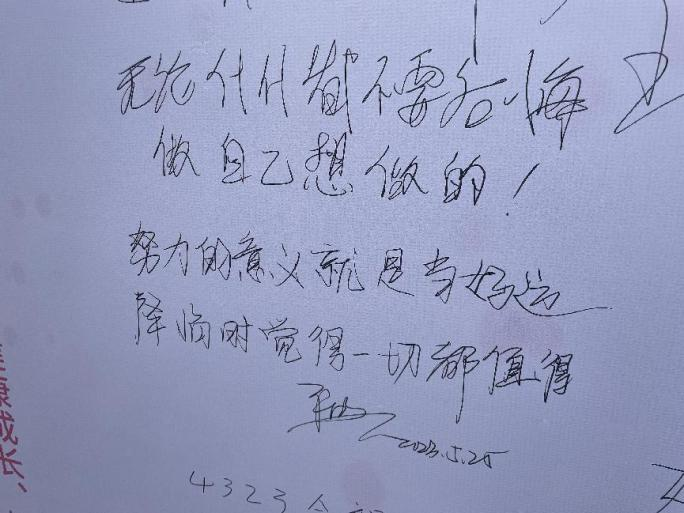 无论什么都不要后悔
做自己想做的!
努力的意义就是当好运
降临时觉得一切都值得
2023.5.25
4323全
健康成长、